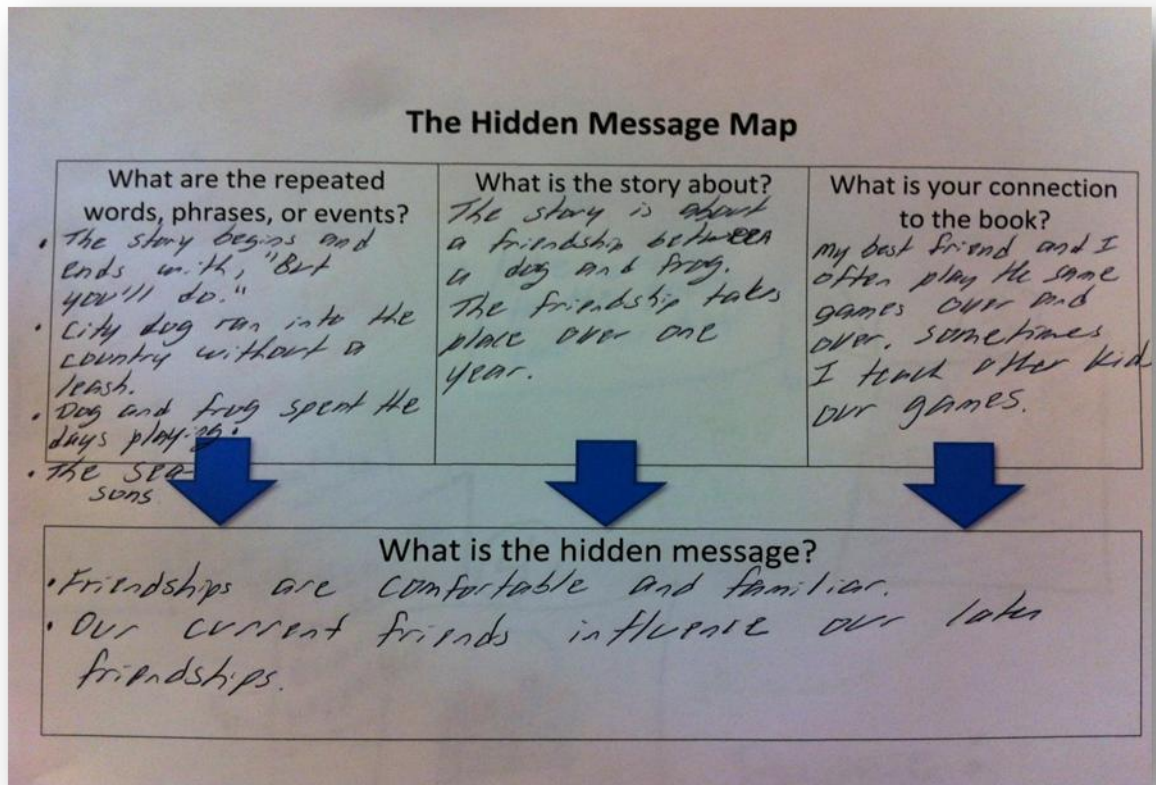 The Hidden Message Map
What are the repeated
words, phrases, or events?
• The story begins and
ends with, "But
you'll do."
• City dog ran into the
country without a
leash.
• Dog and frog spent the
days playing.
• The sea-
sons
What is the story about?
The story is about
a friendship between
a dog and frog.
The friendship takes
place over one
year.
What is your connection
to the book?
My best friend and I
often play the same
games over and
over. Sometimes
I teach other kids
our games.
What is the hidden message?
• Friendships are comfortable and familiar.
• Our current friends influence our later
friendships.